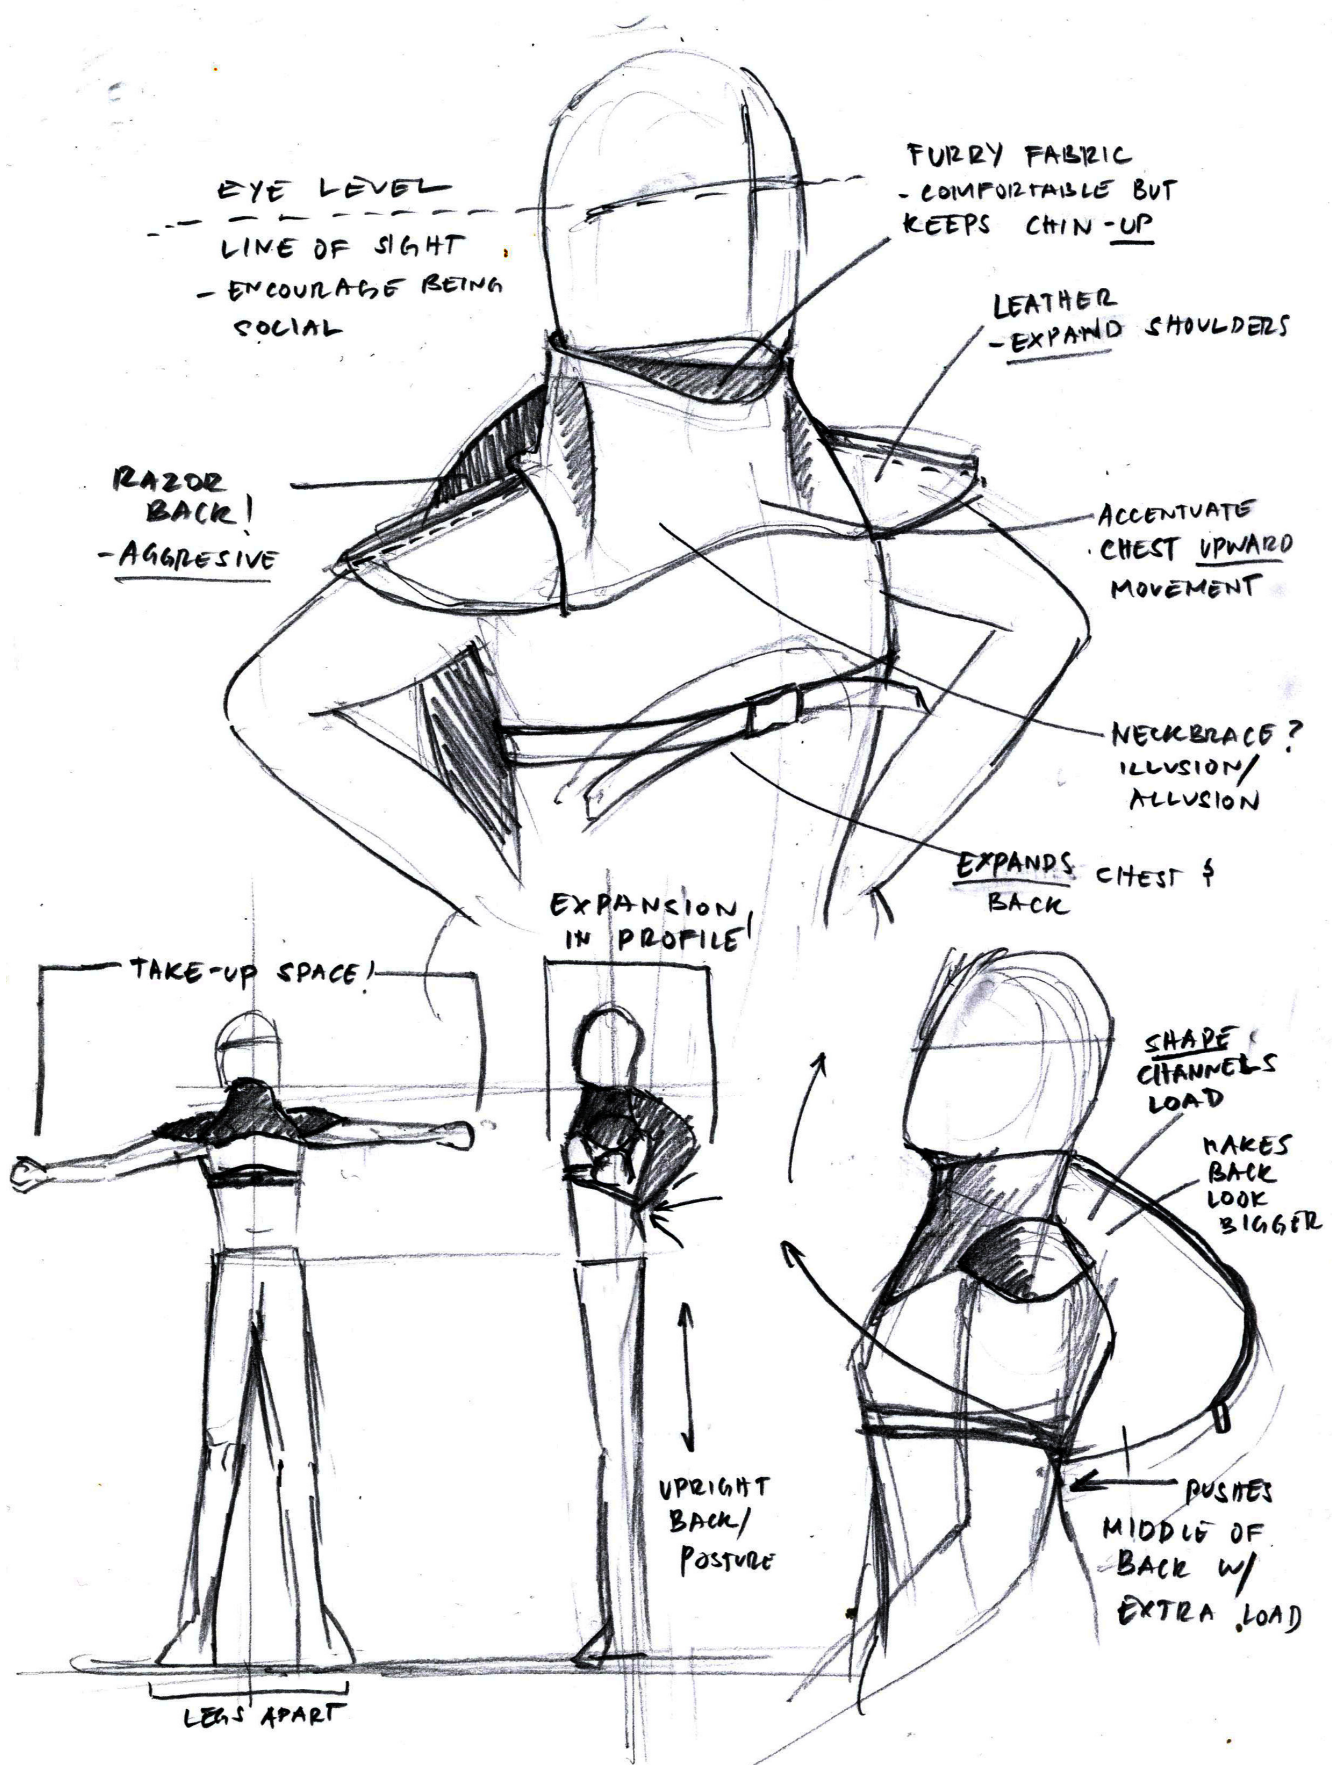 EYE LEVEL
LINE OF SIGHT
- ENCOURAGE BEING
SOCIAL
FURRY FABRIC
- COMFORTABLE BUT
KEEPS CHIN-UP
LEATHER
- EXPAND SHOULDERS
RAZOR
BACK!
- AGGRESIVE
ACCENTUATE
CHEST UPWARD
MOVEMENT
NECKBRACE?
ILLUSION/
ALLUSION
EXPANDS CHEST &
BACK
TAKE-UP SPACE!
EXPANSION
IN PROFILE!
SHAPE
CHANNELS
LOAD
MAKES
BACK
LOOK
BIGGER
UPRIGHT
BACK/
POSTURE
PUSHES
MIDDLE OF
BACK W/
EXTRA LOAD
LEGS APART